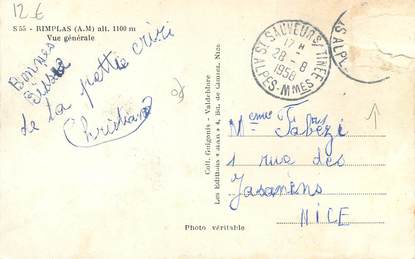 12 €
S 55 - RIMPLAS (A.M) alt. 1100 m
Vue générale
Bonnes
Bises
de la petite crise
Christiane
ST SAUVEUR S/ TINEE
17 H
28 - 8
1958
ALPES-MMES
S ALP
Coll. Guigonis - Valdeblore
Les Editions « MAR » 4, Bd. de Cimiez, Nice
Mme
1 rue des
Jasmins
NICE
Photo véritable